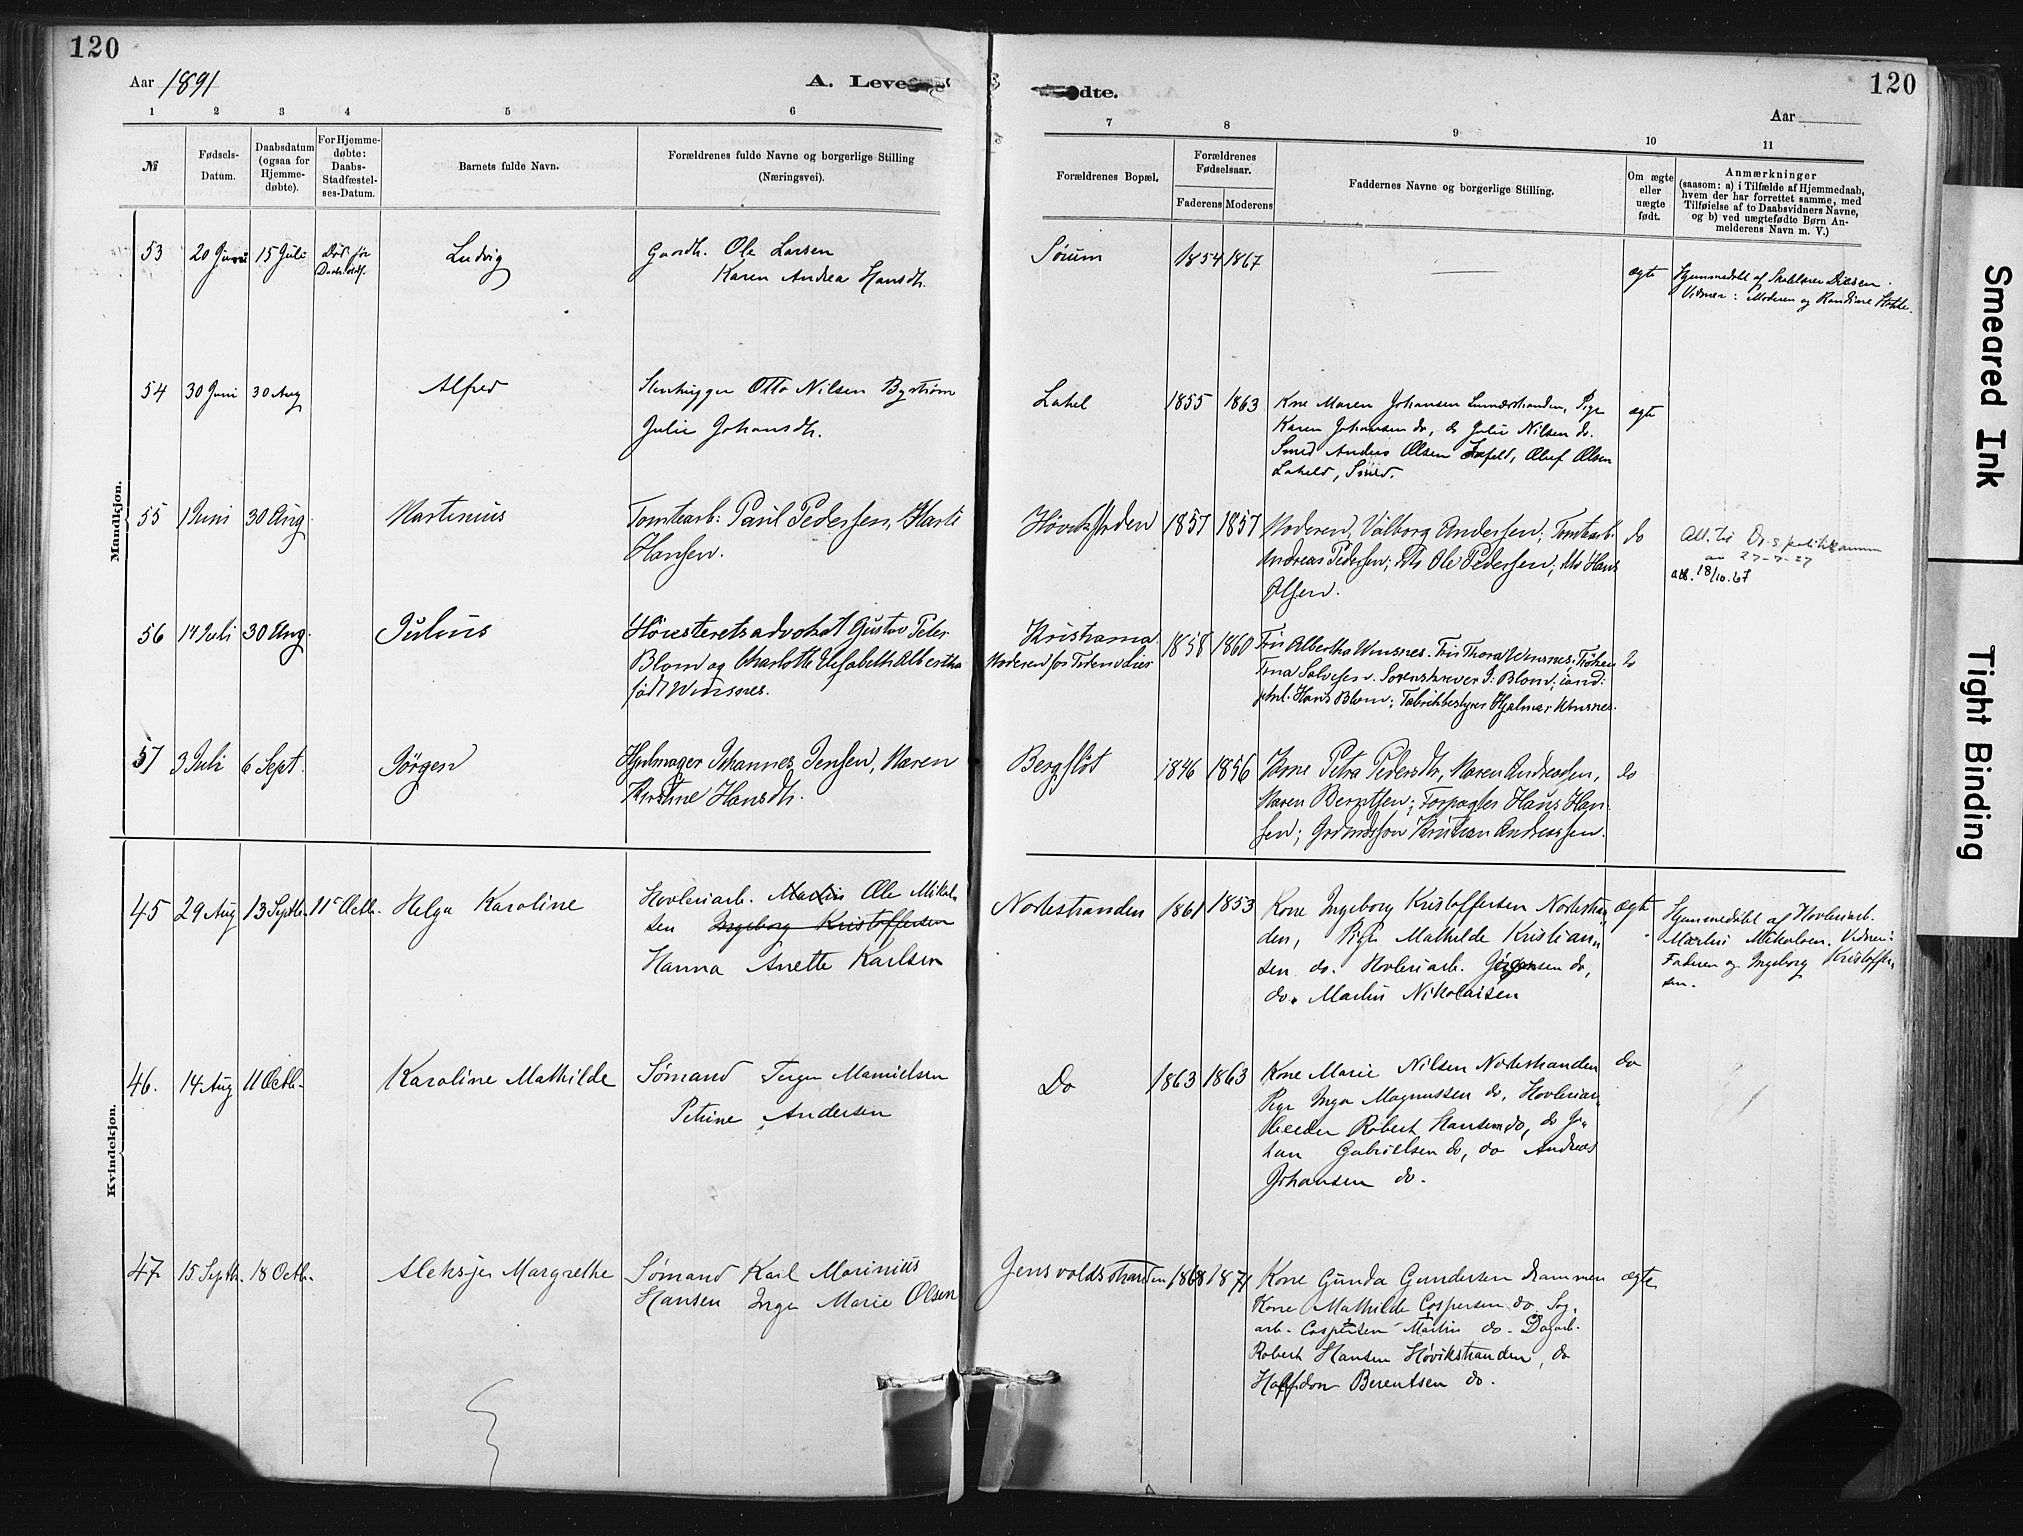 120
Aar 1891
A. Leve
dte.
120
Aar
1 2 3 4 5 6 7 8 9 10 11
№
Fødsels-Datum.
Daabsdatum (ogsaa for Hjemmedøbte).
For Hjemmedøbte: Daabs-Stadfæstelses-Datum.
Barnets fulde Navn.
Forældrenes fulde Navne og borgerlige Stilling (Næringsvei).
Forældrenes Bopæl.
Forældrenes Fødselsaar.
Faderens Moderens
Faddernes Navne og borgerlige Stilling.
Om ægte eller uægte født.
Anmærkninger
(saasom: a) i Tilfælde af Hjemmedaab,
hvem der har forrettet samme, med
Tilføielse af to Daabsvidners Navne,
og b) ved uægtefødte Børn An-
melderens Navn m. V.)
Mandkjøn.
53 20 Juni 15 Juli Død før Ludvig Gaardb. Ole Larsen
Karen Andrea Hansdt.
Sørum 1854 1867 ægte
Hjemmedøbt af Skolelærer
Vidner: Moderen og Randine
54 30 Juni 30 Aug Alfred Stenhugger Otto Nilsen Bystrøm
Julie Johansdt.
Lahel 1855 1863 Kone Maren Johansen Pige
Karen Johansen do, do Julie Nilsen do.
Smed Anders Olsen Oluf Olsen
Smed.
ægte
55 1 Juni 30 Aug. Martinius Tomtearb: Paul Pedersen,
Hansen.
1857 1857 Moderen, Valborg Andersen; Tomtearb.
Andreas Pedersen; Ole Pedersen; Hans
Olsen.
do
27-7-27
att. 18/10.67
56 14 Juli 30 Aug. Julius Høiesteretsadvokat Gustav Peter
Blom og Charlotte Elisabeth Albertha
født Wensnes.
Kristiania
1858 1860 Fru Albertha Wensnes. Fru Thora Wensnes; Frøken
Sorenskriver P: Blom; cand:
Hans Blom; Fabrikbestyrer Hjalmar Wensnes.
do
57 3 Juli 6 Sept. Jørgen Hjulmager Johannes Jensen, Maren
Kirstine Hansdt.
Bergflot 1846 1856 Kone Petra Pedersdtr, Maren Andreasen,
Maren Berntsen; Forpagter Hans Han-
sen; Kristian Andreassen.
do
Kvindekjøn.
45 29 Aug 13 Septb. 11 Octb. Helga Karoline Høvleriarb. Martin Ole Mikal-
sen Ingeborg Kristoffersen
Hanna Anette Karlsen
Nostestranden 1861 1853 Kone Ingeborg Kristoffersen Nostestran-
den, Pige Mathilde Kristian-
sen do. Høvleriarb. Jørgensen do,
do. Martin Nikolaisen
ægte
Hjemmedøbt af Høvleriarb.
Martin Mikalsen. Vidner:
Faderen og Ingeborg Kristoffer-
sen.
46. 14 Aug 11 Octb. Karoline Mathilde Sømand Manuelsen
Petrine Andersen
Do 1863 1863 Kone Marie Nilsen Nostestranden
Pige Inga Magnussen do, Høvleriar-
beider Robert Hansen do, do Jo-
han Gabrielsen do, do Andreas
Johansen do.
do
47 15 Septb. 18 Octb. Margrethe Sømand Karl Marinius
Hansen Inga Marie Olsen
Jensvoldstranden 1868 1871 Kone Gunda Gundersen Drammen
Kone Mathilde Caspersen do. Sag-
arb. Caspersen Martin do. Dagarb.
Robert Hansen Høvikstranden, do
Halfdan Berentsen do.
ægte
Smeared Ink
Tight Binding